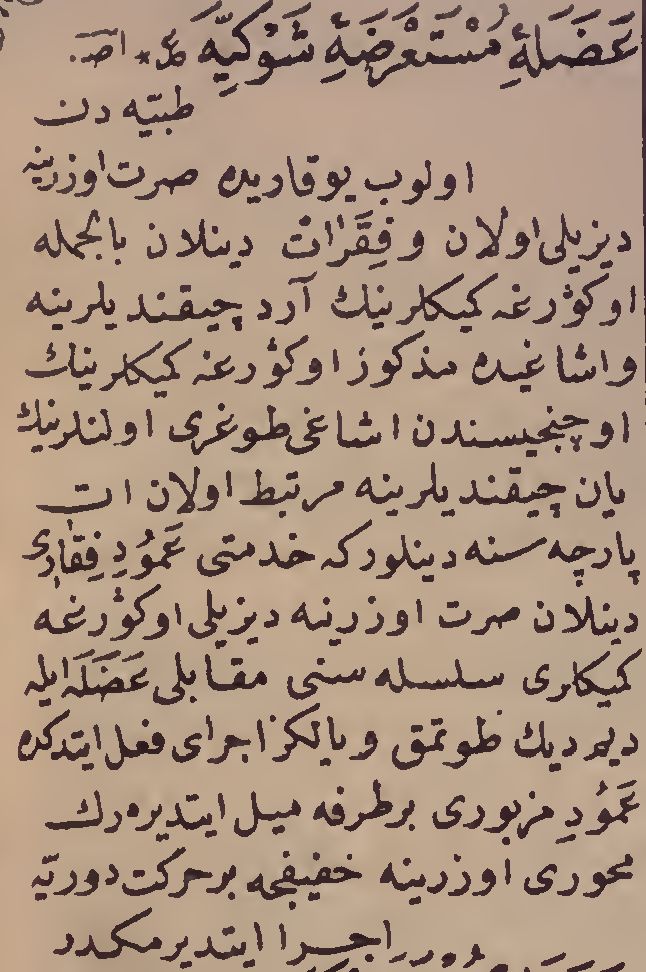 عَضَلَهٔ مُسْتَعْرِضَهٔ شَوْكِيَّه ع٭ اصـ.
طبيّه دن
اولوب يوقاريده صرت اوزرينه
ديزيلى اولان و فِقَرَات دينلان بالجمله
اوكوُرغه كميكلرينك آرد چيقنديلرينه
واشاغيده مذكور اوكوُرغه كميكلرينك
اوچنجيسندن اشاغى طوغرى اولنلرينك
يان چيقنديلرينه مرتبط اولان ات
پارچه سنه دينلور كه خدمتى عَمُودِ فِقَارِى
دينلان صرت اوزرينه ديزيلى اوكوُرغه
كميكلرى سلسله سنى مقابلى عَضَلَه ايله
ديم ديك طوتمق ويالكز اجراى فعل ايتدكده
عَمُودِ مزبورى بر طرفه ميل ايتديره رك
محورى اوزرينه خفيفجه بر حركت دوريّه
اجرا ايتديرمكدر